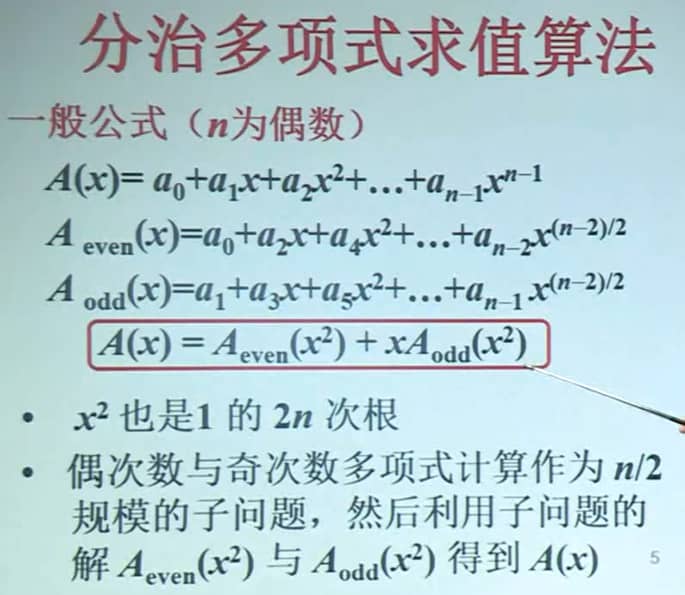 分治多项式求值算法
一般公式（n为偶数）
A(x)= a₀+a₁x+a₂x²+…+aₙ₋₁xⁿ⁻¹
A even(x)=a₀+a₂x+a₄x²+…+aₙ₋₂x⁽ⁿ⁻²⁾/²
A odd(x)=a₁+a₃x+a₅x²+…+aₙ₋₁x⁽ⁿ⁻²⁾/²
A(x) = Aeven(x²) + xAodd(x²)
• x² 也是1 的 2n 次根
• 偶次数与奇次数多项式计算作为 n/2
规模的子问题，然后利用子问题的
解 Aeven(x²) 与 Aodd(x²) 得到 A(x)
5